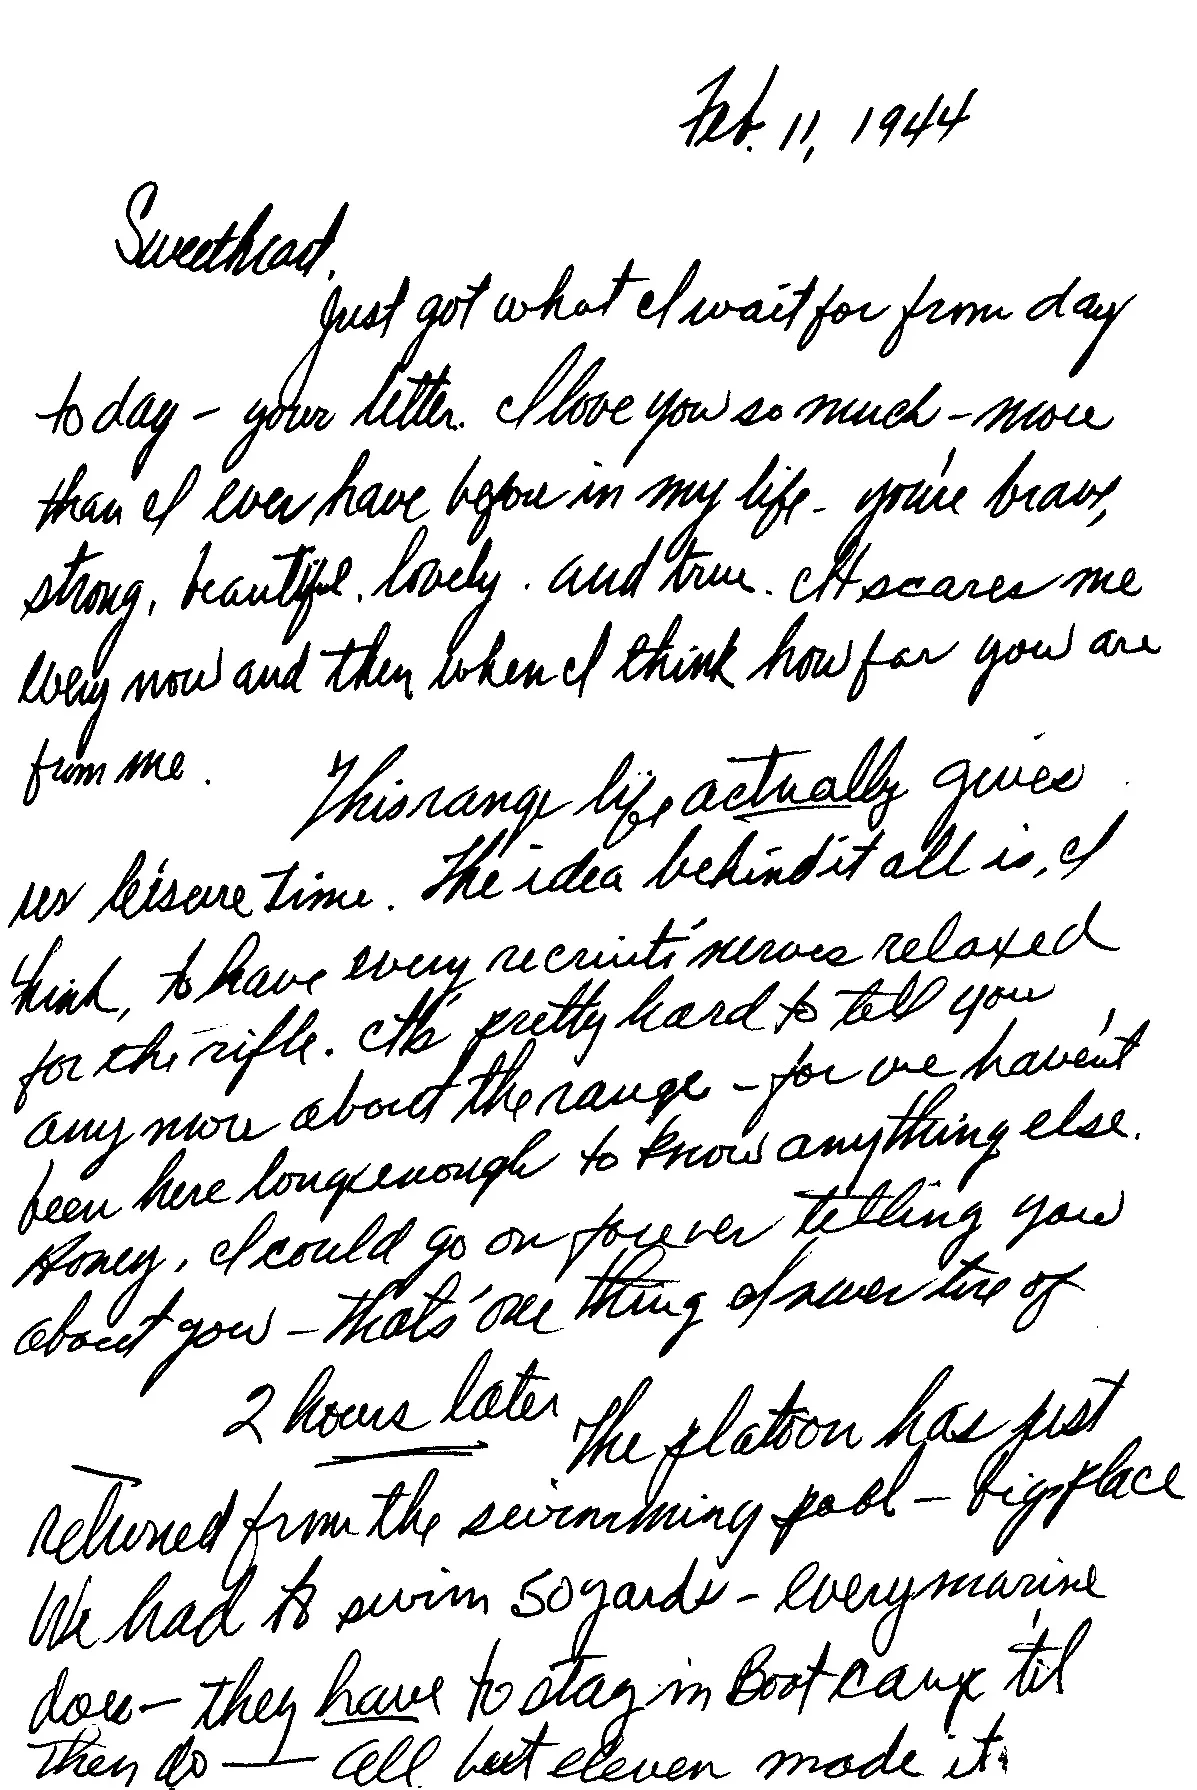 Feb. 11, 1944
Sweetheart,
Just got what I wait for from day
to day – your letter. I love you so much – more
than I ever have before in my life – you're brave,
strong, beautiful, lovely, and true. It scares me
every now and then when I think how far you are
from me.
This range life actually gives
us leisure time. The idea behind it all is, I
think, to have every recruits' nerves relaxed
for the rifle. It's pretty hard to tell you
any more about the range – for we haven't
been here long enough to know anything else.
Honey, I could go on forever telling you
about you – that's one thing I never tire of
2 hours later
The platoon has just
returned from the swimming pool – big place
We had to swim 50 yards – every marine
does – they have to stay in Boot camp 'til
they do — all but eleven made it.